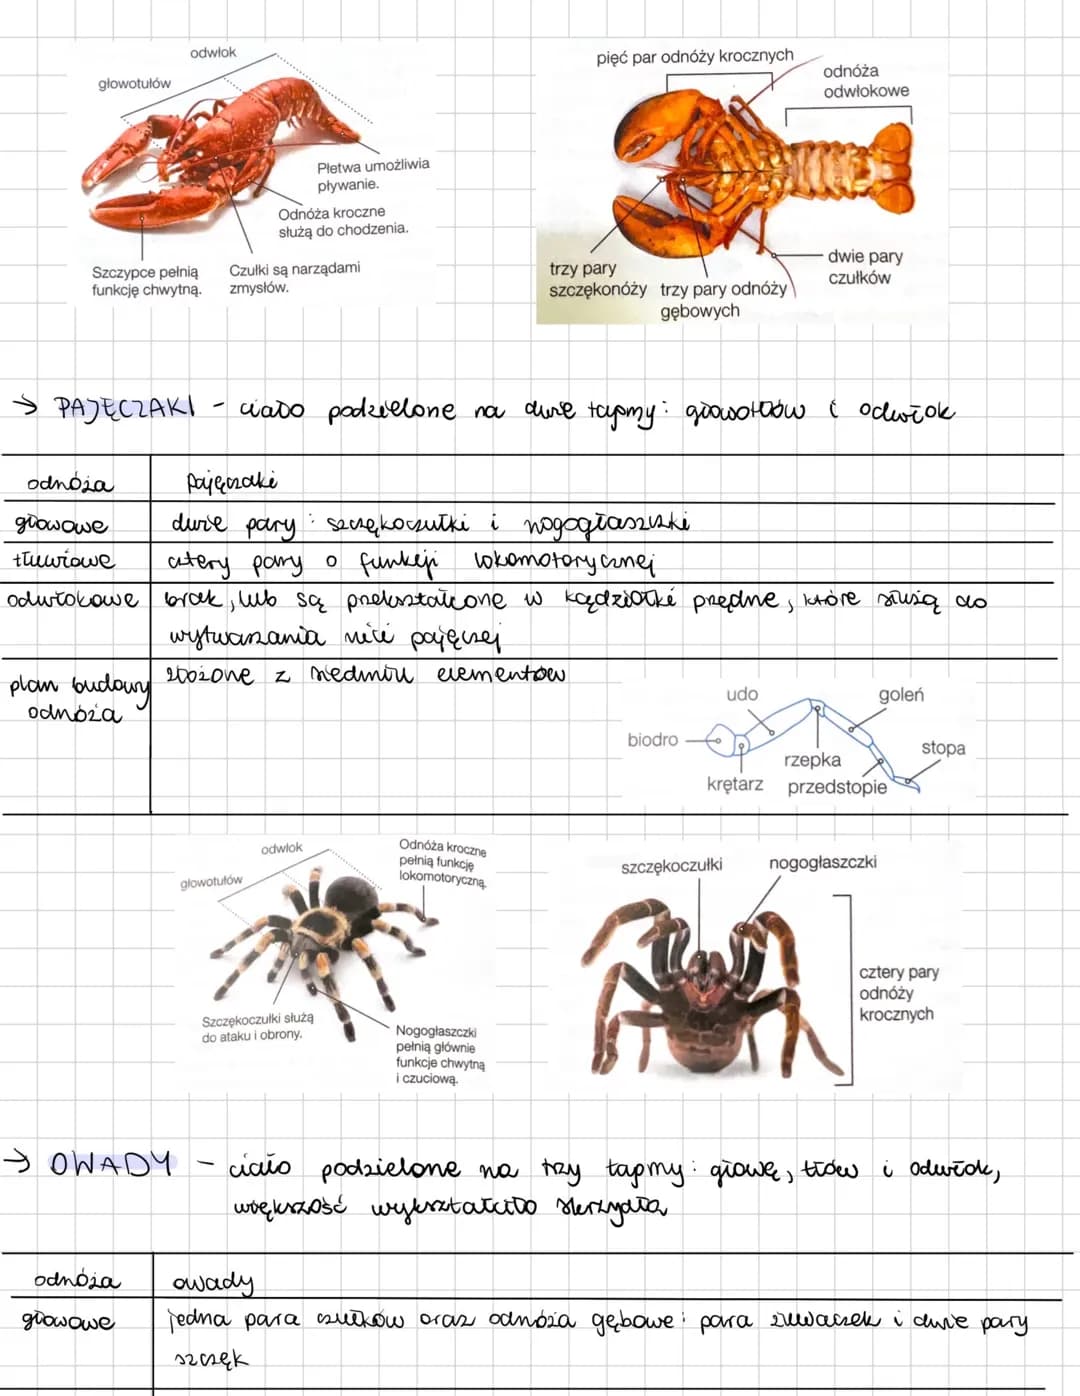 odwłok
głowotułów
Płetwa umożliwia
pływanie.
Odnóża kroczne
służą do chodzenia.
Szczypce pełnią
funkcję chwytną.
Czułki są narządami
zmysłów.
pięć par odnóży krocznych
odnóża
odwłokowe
trzy pary
szczękonóży
trzy pary odnóży
gębowych
dwie pary
czułków
→ PAJĘCZAKI - ciało podzielone na dwie tagmy: głowotułów i odwłok
odnóża pajęczaki
głowowe dwie pary: szczękoczułki i nogogłaszczki
tłuwiowe cztery pary o funkcji lokomotorycznej
odwłokowe brak, lub są przekształcone w kądziołki przędne, które służą do
wytwarzania nici pajęczej
plan budowy złożone z siedmiu elementów
odnóża
udo
goleń
biodro
stopa
rzepka
krętarz
przedstopie
odwłok
głowotułów
Odnóża kroczne
pełnią funkcję
lokomotoryczną.
Szczękoczułki służą
do ataku i obrony.
Nogogłaszczki
pełnią głównie
funkcje chwytną
i czuciową.
szczękoczułki
nogogłaszczki
cztery pary
odnóży
krocznych
→ OWADY - ciało podzielone na trzy tagmy: głowę, tłów i odwłok,
większość wykształciło skrzydła
odnóża owady
głowowe jedna para czułków oraz odnóża gębowe: para żuwaczek i dwie pary
szczęk